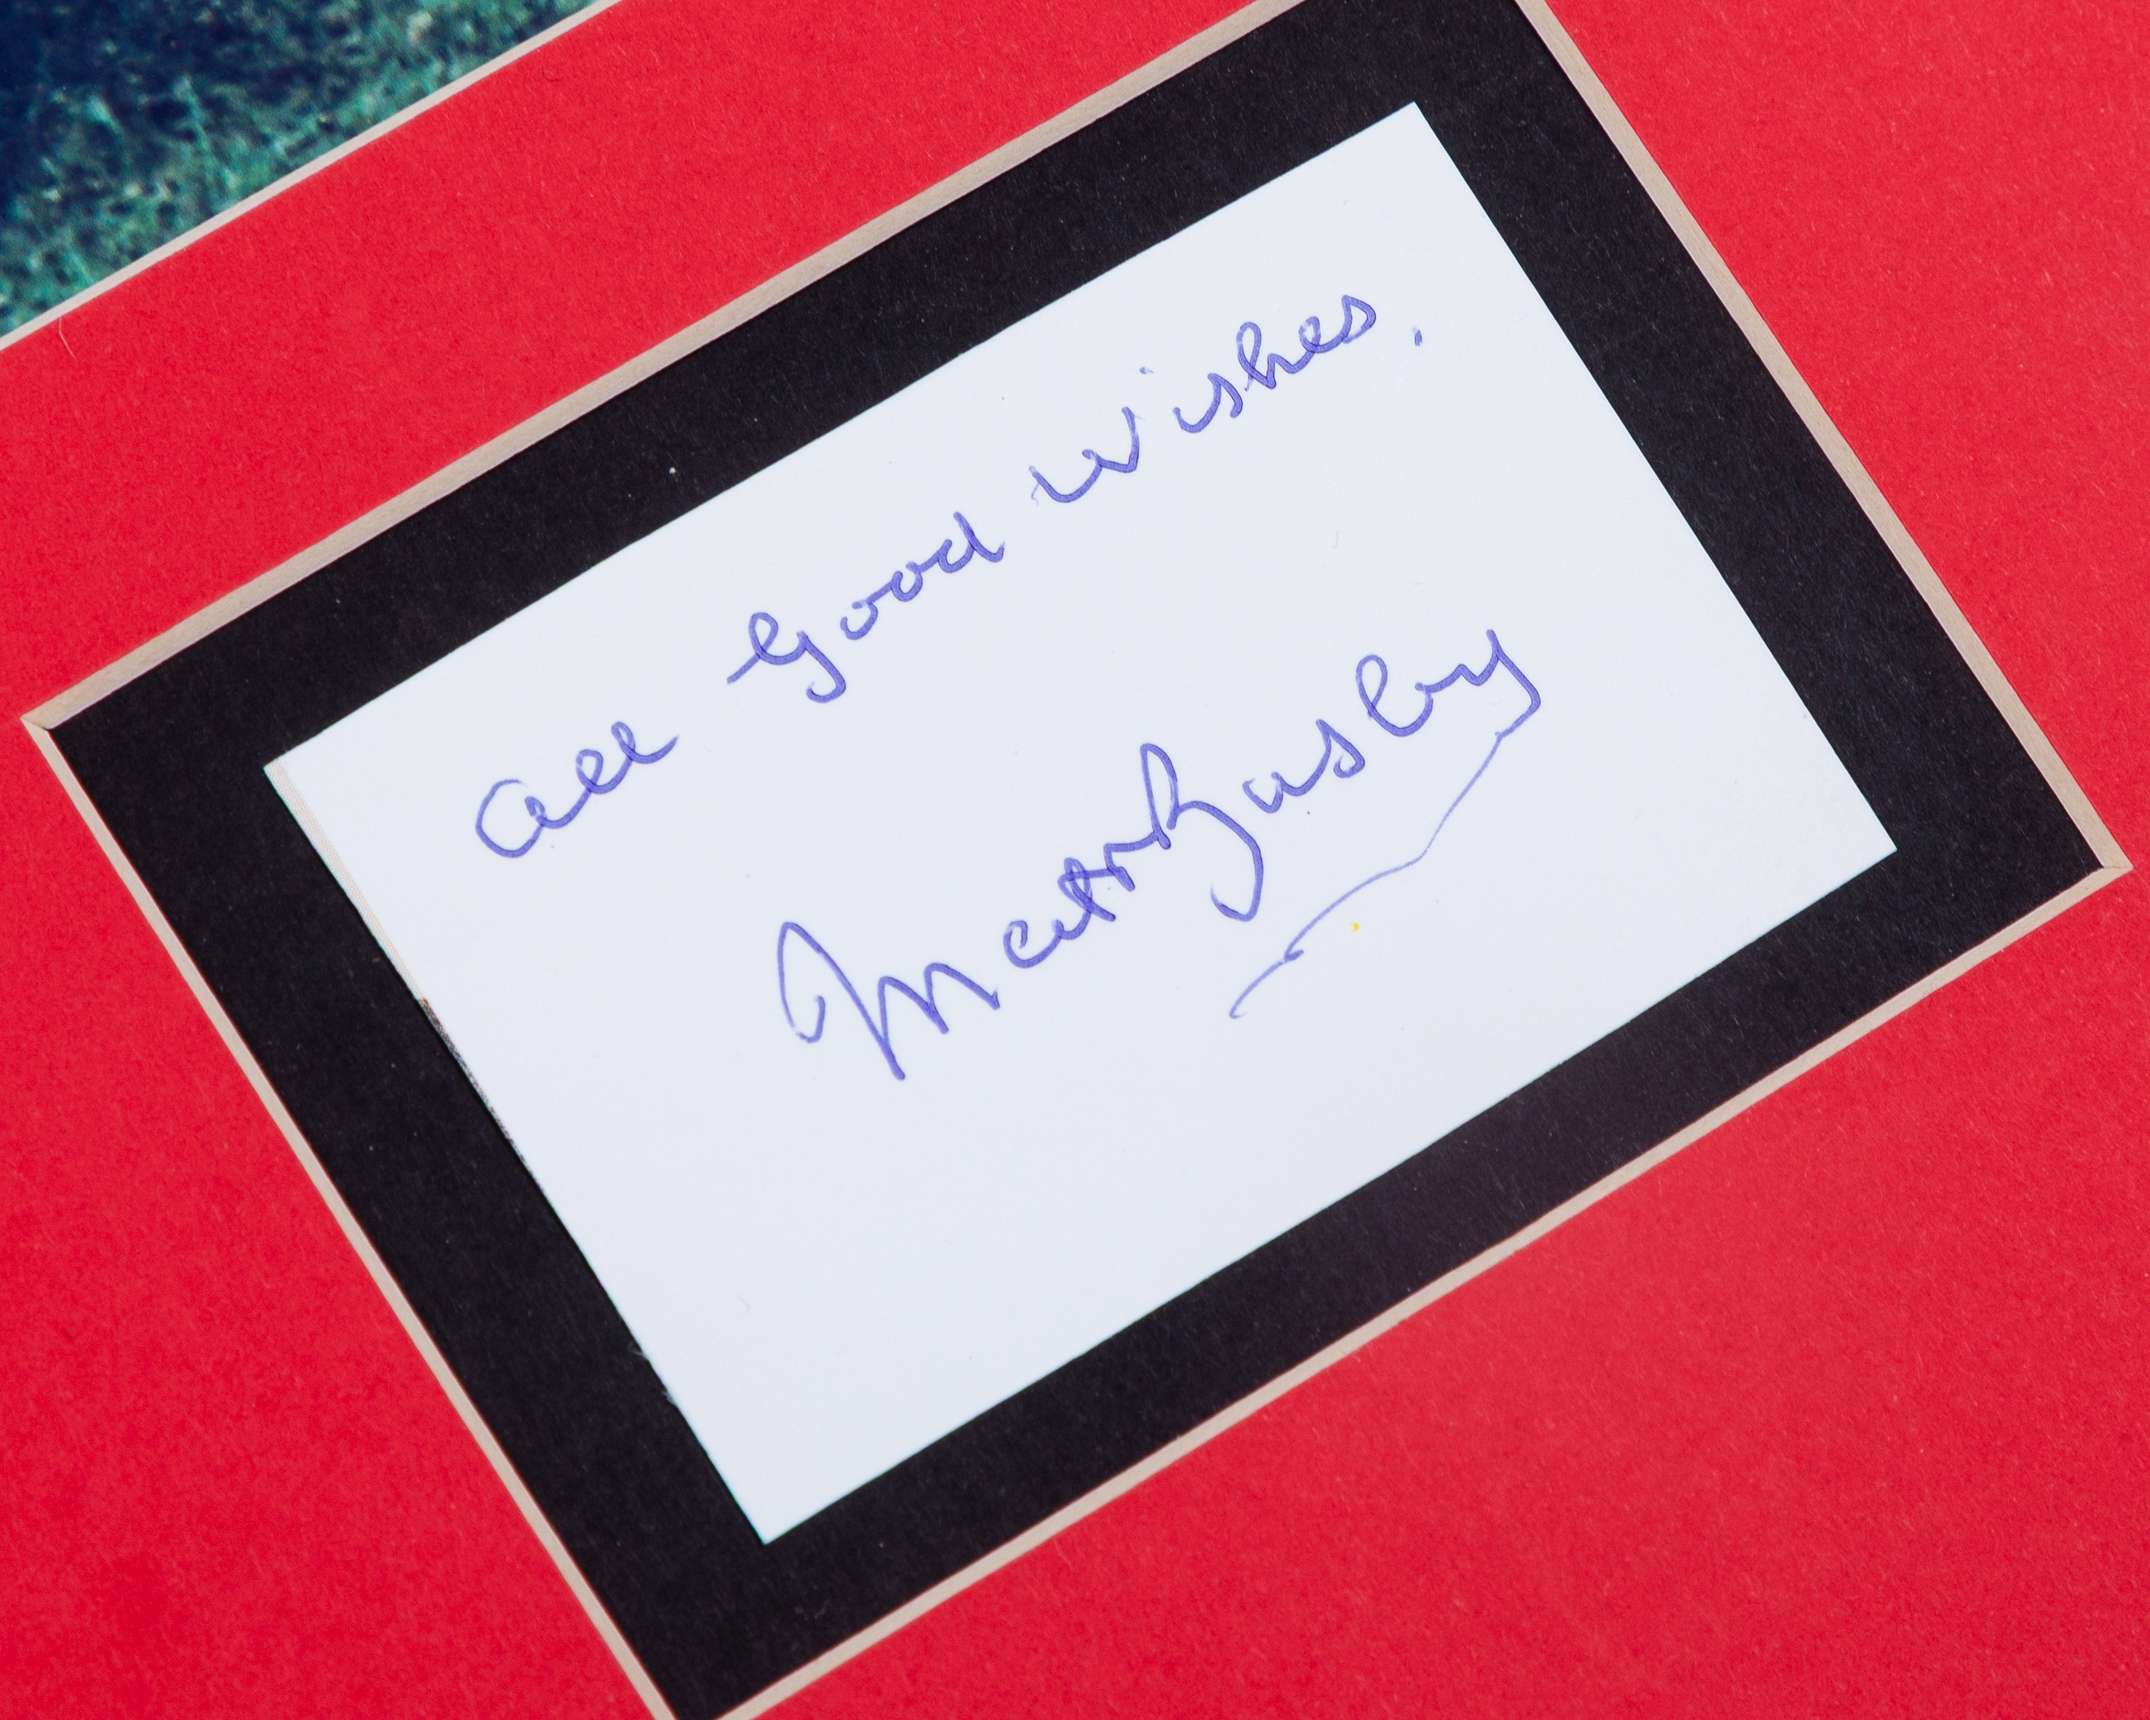 All Good Wishes.
Matt Busby